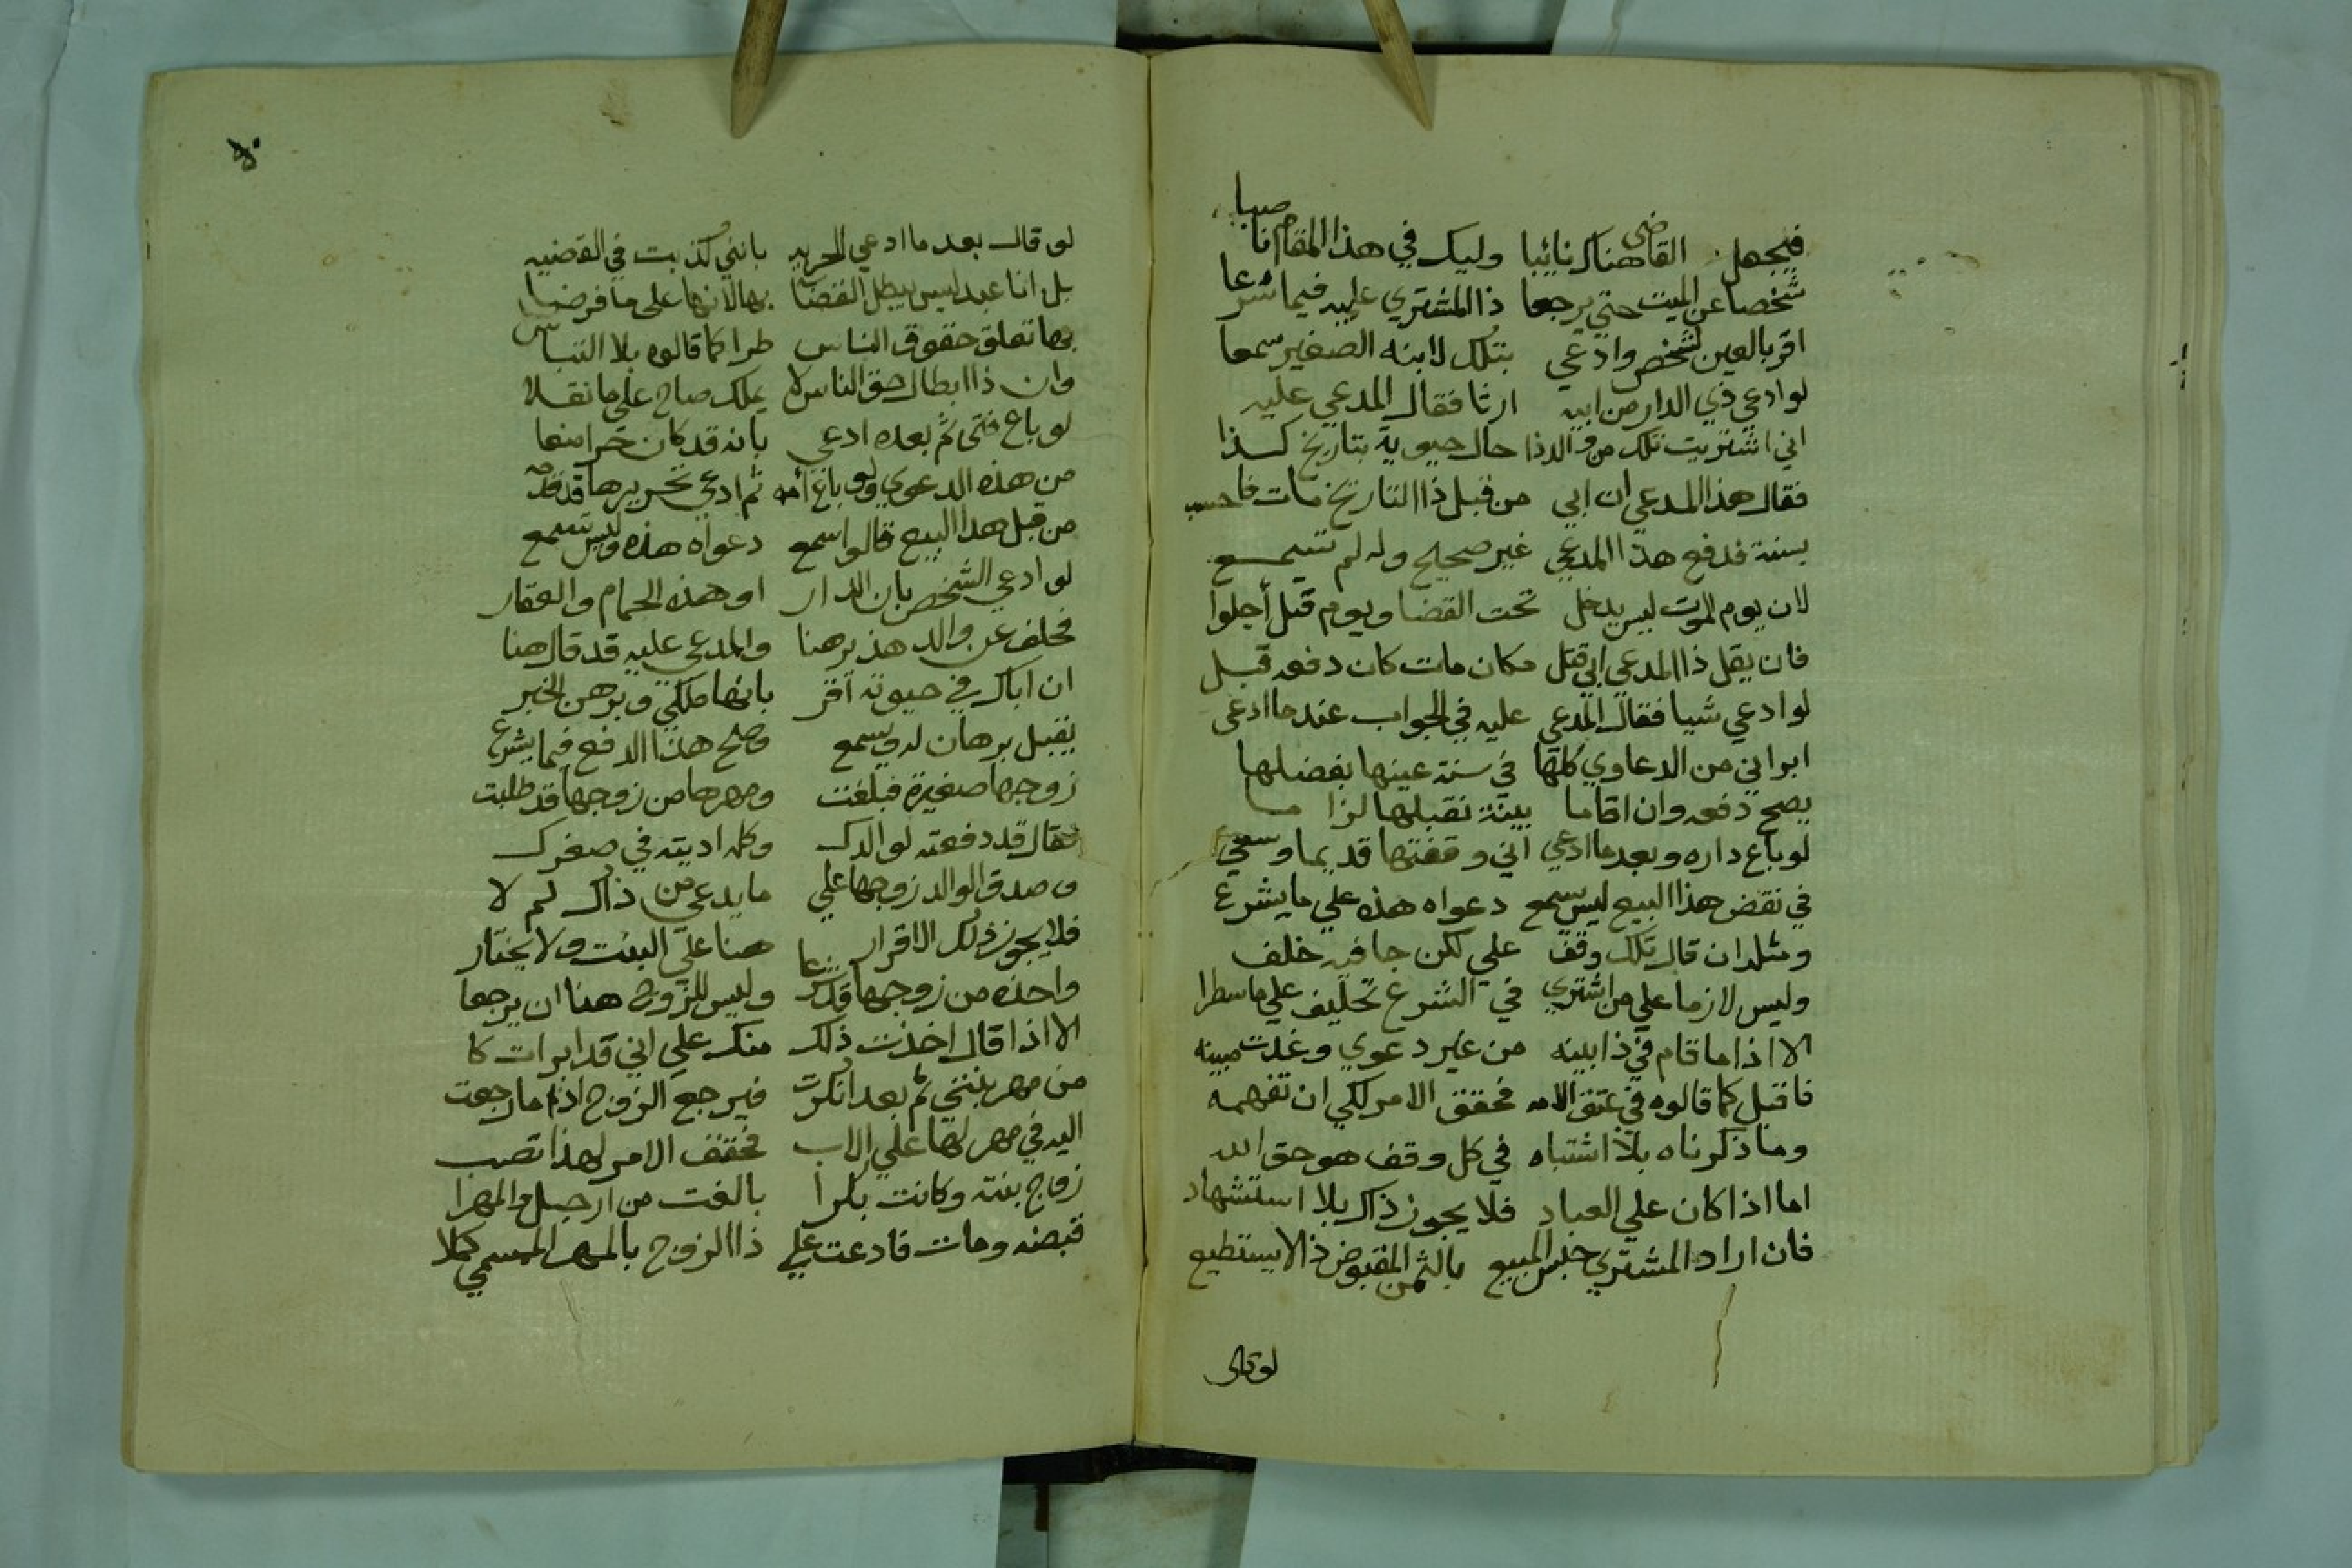 فيجعل القاضي هناك نائبا وليك في هذا المقام نا صبيا
شخصا عن الميت حتي يرجعا ذا المشتري عليه فيما شرعا
اقر بالعين لشخص وادعي بتلك لابنه الصغير سمعا
لو ادعي ذي الدار من ابيه ارثا فقال المدعي عليه
اني اشتريت تلك من والد ذا حال حيوية بتاريخ كذا
فقال هذا المدعي ان ابي من قبل ذا التاريخ مات فاحسب
بسنة فدفع هذا المدعي غير صحيح وله لم تسمع
لان يوم الموت ليس يدخل تحت القضا ويوم قتل أجلوا
فان يقل ذا المدعي ابي قتل مكان مات كان دفعه قبل
لو ادعي شيا فقال المدعي عليه في الجواب عند ما ادعي
ابراني من الدعاوي كلها في سنة عينها بفضلها
يصح دفعه وان اقاما بينة نقبلها لزا ما
لو باع داره وبعد ما ادعي اني وقفتها قديما وسعي
في نقض هذا البيع ليس يسمع دعواه هذه علي ما يشرع
ومثله ان قال تلك وقف علي لكن جا فيه خلف
وليس لازما علي من اشتري في الشرع تحليف علي ما سطرا
الا اذا ما قام في ذا بينه من غير دعوي وغدت مبينه
فاقبل كما قالوه في عتق الامه فحقق الامر لكي ان تفهمه
وما ذكرناه بلا اشتباه في كل وقف هو حق الله
اما اذا كان علي العباد فلا يجوز ذاك بلا استشهاد
فان اراد المشتري حبس المبيع بالثمن المقبوض ذا لا يستطيع
لو قال
لو قال بعد ما ادعي الحريه بانني كذبت في القضيه
بل انا عبد ليس يبطل القضا بها لانها علي ما فرضا
بها تعلق حقوق الناس طرا كما قالوه بلا التباس
وان ذا ابطال حق الناس لا يملك صاح علي ما نقلا
لو باع فتى ثم بعده ادعي بانه قد كان حرا منعا
من هذه الدعوي ولو باع أمه ثم ادعي تحريرها قد قدمه
من قبل هذا البيع قالوا اسمع دعواه هذه وليس تسمع
لو ادعي الشخص بان الدار او هذه الحمام والعقار
مخلف عن والد هذ برهنا والمدعي عليه قد قال هنا
ان اباك في حيوته اقر بانها ملكي وبرهن الخبر
يقبل برهان له ويسمع وصح هذا الدفع فيما يشرع
زوجها صغيرة فبلغت ومهرها من زوجها قد طلبت
فقال قد دفعته لوالدك وكله اديته في صغرك
وصدق الوالد زوجها علي ما يدعي من ذاك لم لا
فلا يجوز ذلك الاقرار هنا علي البنت ولا يختار
واخذه من زوجها قد شرعا وليس للزوج هنا ان يرجعا
الا اذا قال اخذت ذلك منك علي اني قد ابرات كا
من مهر بنتي ثم بعد انكرت فيرجع الزوج اذا ما رجعت
اليه في مهر لها علي الاب فحقق الامر لهذا تصب
زوج بنته وكانت بكرا بالغت من ارجل والمهرا
قبضه ومات فادعت علي ذا الزوج بالمهر المسمي كملا